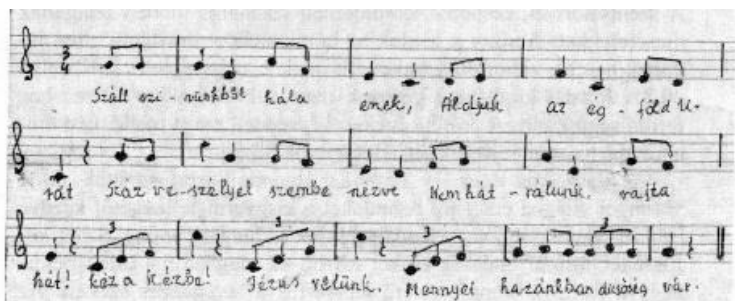 Száll szí-vünkből hála ének, Áldjuk az ég-föld U-
rát Száz ve-szélyel szembe nézve Nem hát-rálunk, rajta
hát! kéz a kézbe! Jézus velünk. Mennyei hazánkban dicsőség vár.